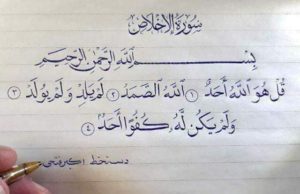 سُورَةُ الْإِخْلَاصِ
بِسْمِ اللَّهِ الرَّحْمَٰنِ الرَّحِيمِ
قُلْ هُوَ اللَّهُ أَحَدٌ ١ اللَّهُ الصَّمَدُ ٢ لَمْ يَلِدْ وَلَمْ يُولَدْ ٣
وَلَمْ يَكُنْ لَهُ كُفُوًا أَحَدٌ ٤
دستخط اکبر فتحی